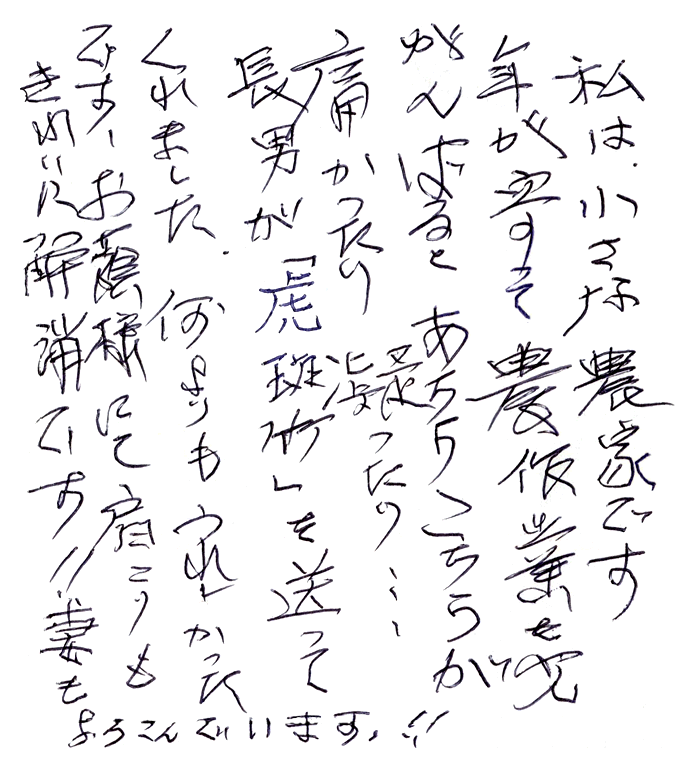 私は、小さな農家です
年が寄って農作業を
がんばると あちらこちらが
痛かったり 凝ったり…
長男が「虎斑竹」を送って
くれました. 何よりもうれしかった
です、お蔭様にて肩こりも
きれいに解消です!!妻も
よろこんでいます。!!